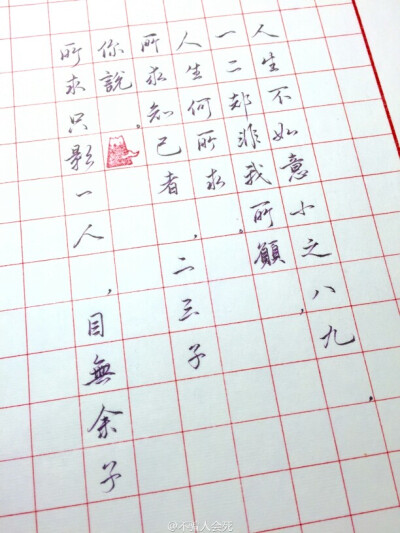 人生不如意小之八九，
一二却非我所願，
人生何所求。
所求知己者，二三子
你說。
所求只影一人，目無余子